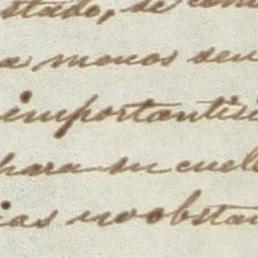 stado, se con
a menos den
importantisi
para su cuel
ias no obstan